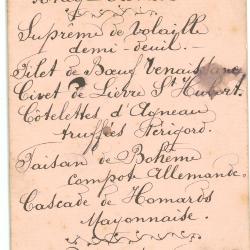 Suprême de Volaille
demi-deuil.-
Filet de Bœuf Venaissane
Civet de Lièvre St Hubert.
Côtelettes d'Agneau
truffées Périgord.
Faisan de Bohême
compot Allemande.
Cascade de Homards
Mayonnaise.